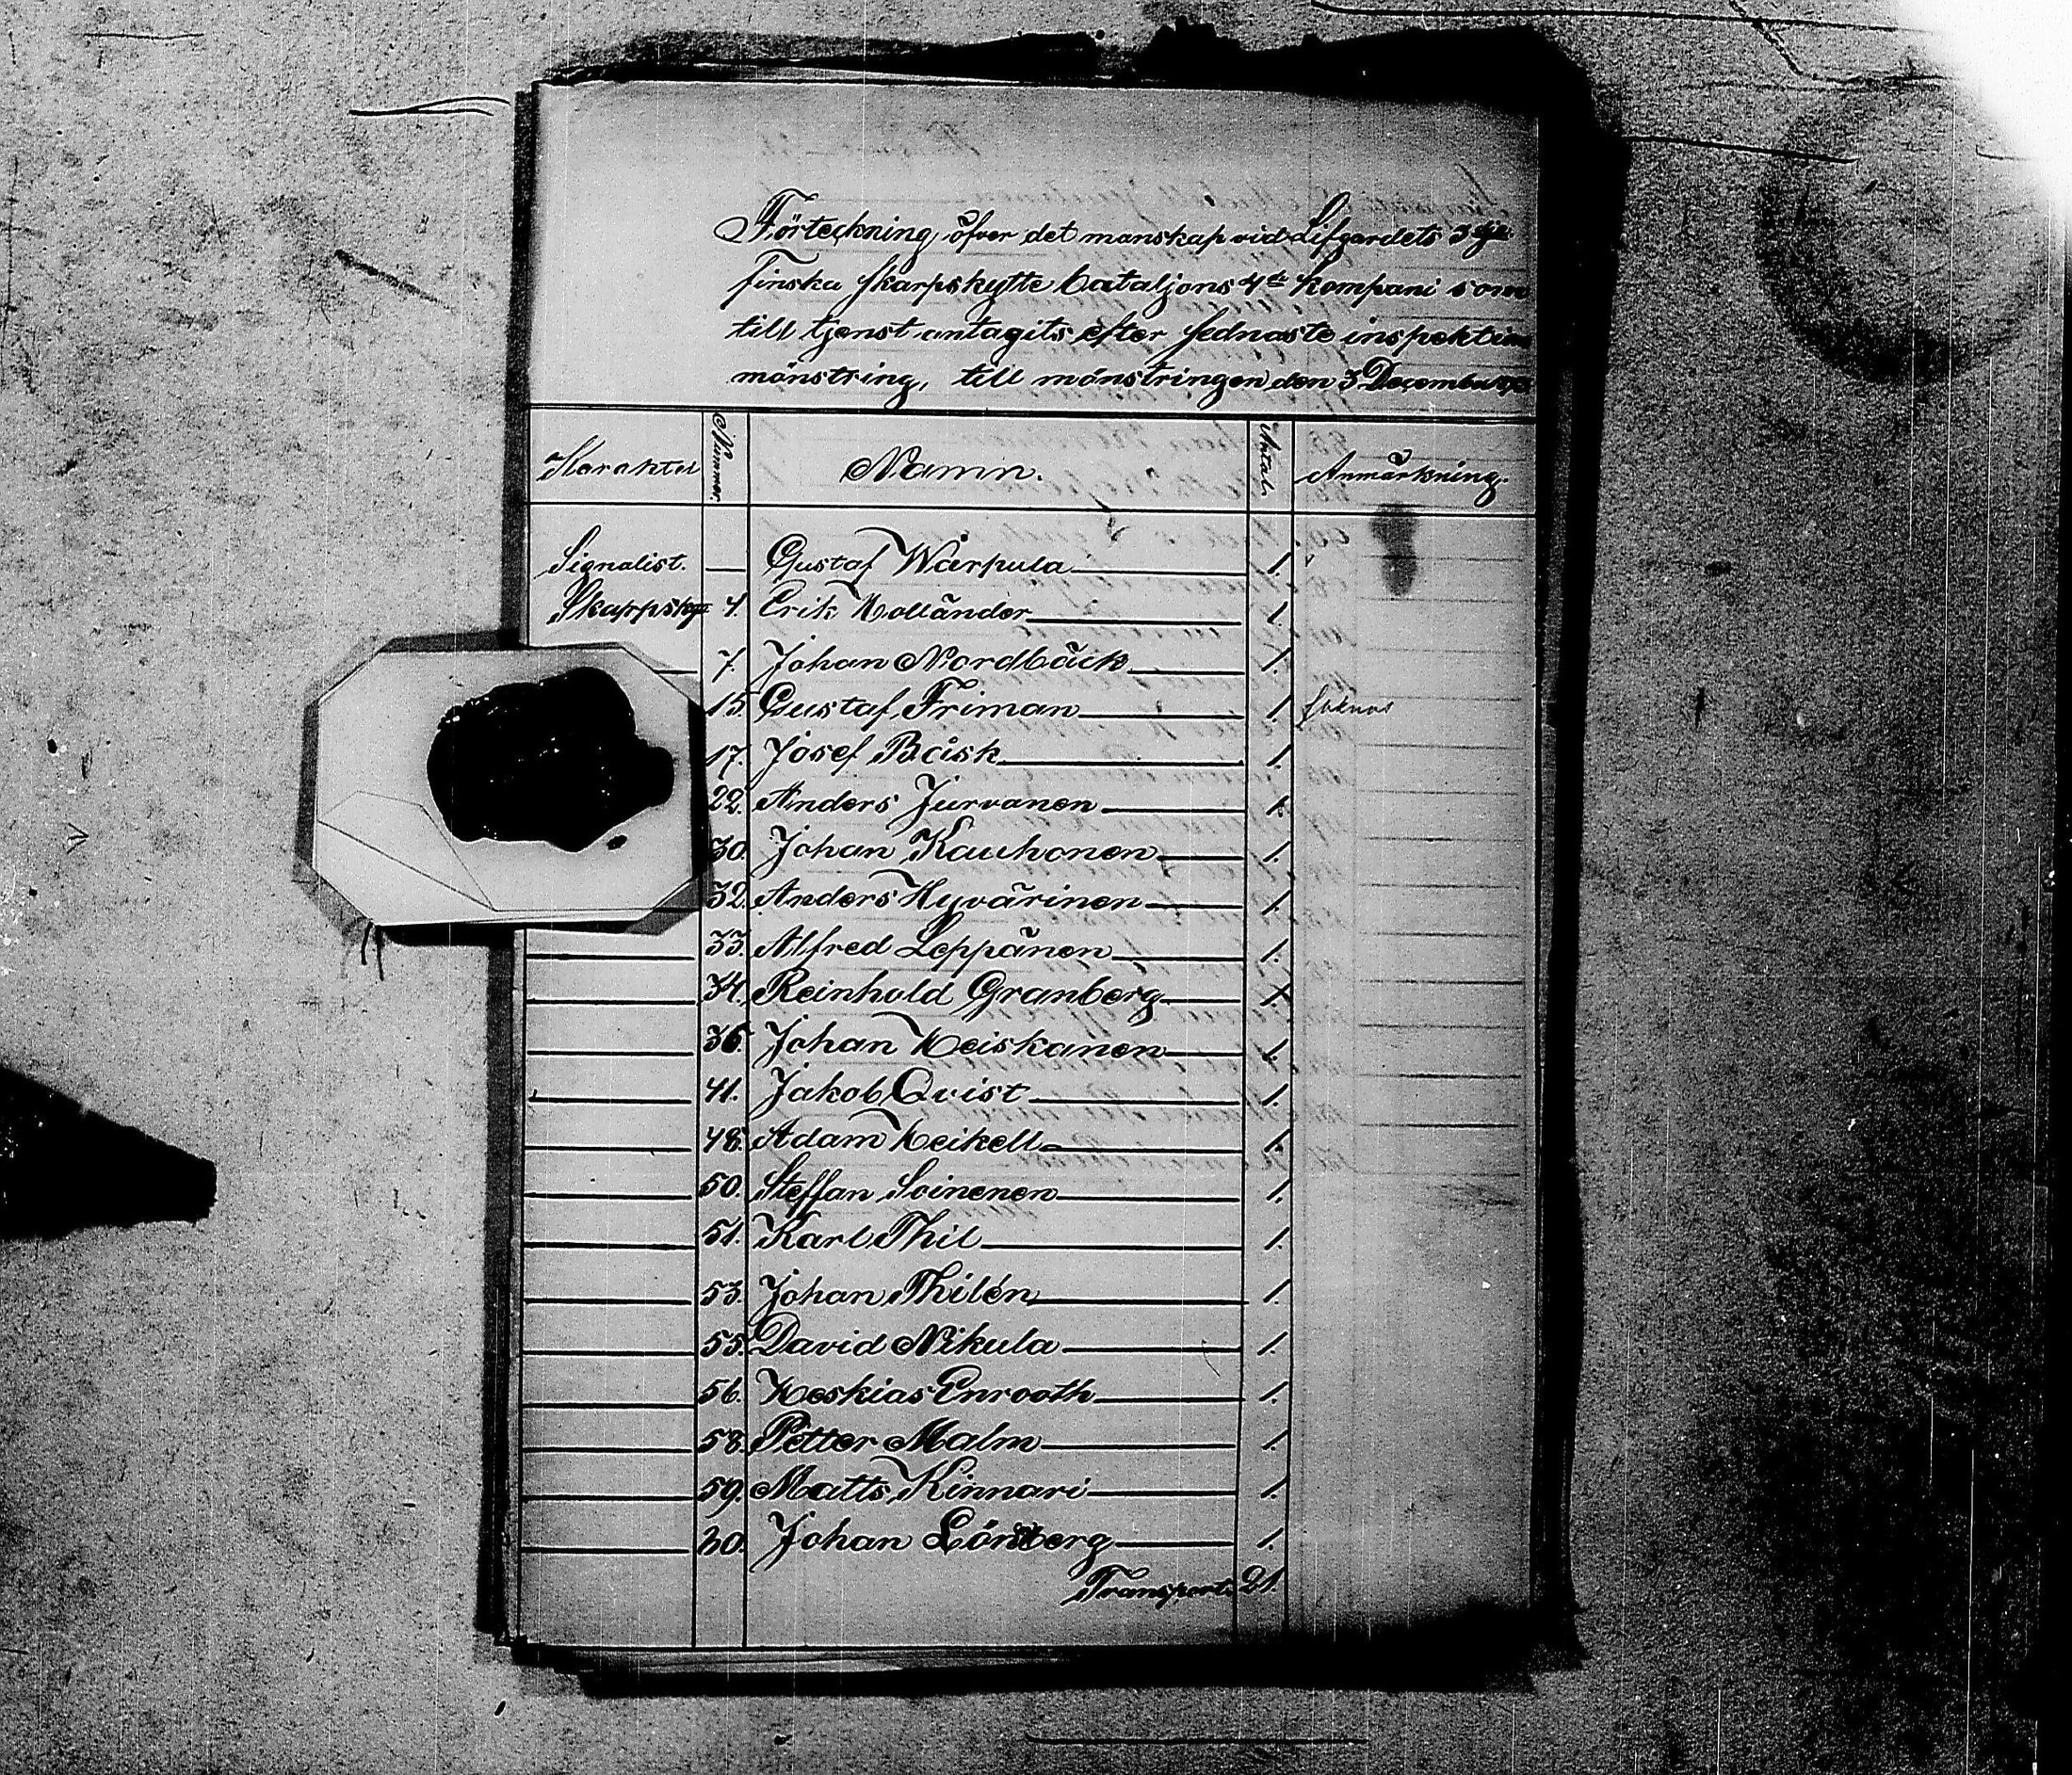 Förteckning öfver det manskap vid Lifgardets 3dje
Finska skarpskytte bataljons 4de kompani som
till tjenst antagits efter sednaste inspektions
mönstring, till mönstringen den 3 December
Karakter Nummer. Namn. Antal. Anmärkning.
Signalist. — Gustaf Wärpula 1.
Skarpsky 4. Erik Holländer 1.
7. Johan Nordbäck 1.
15. Gustaf Friman 1. saknas
17. Josef Rask 1.
22. Anders Jurvanen 1.
30. Johan Kauhonen 1.
32. Anders Hyvärinen 1.
33. Alfred Leppänen 1.
34. Reinhold Granberg 1.
36. Johan Heiskanen 1.
41. Jakob Qvist 1.
48. Adam Heikell 1.
50. Steffan Soinenen 1.
51. Karl Thil 1.
53. Johan Thilén 1.
55. David Nikula 1.
56. Heskias Enrooth 1.
58. Petter Malm 1.
59. Matts Kinnari 1.
60. Johan Lönberg 1.
Transport: 21.